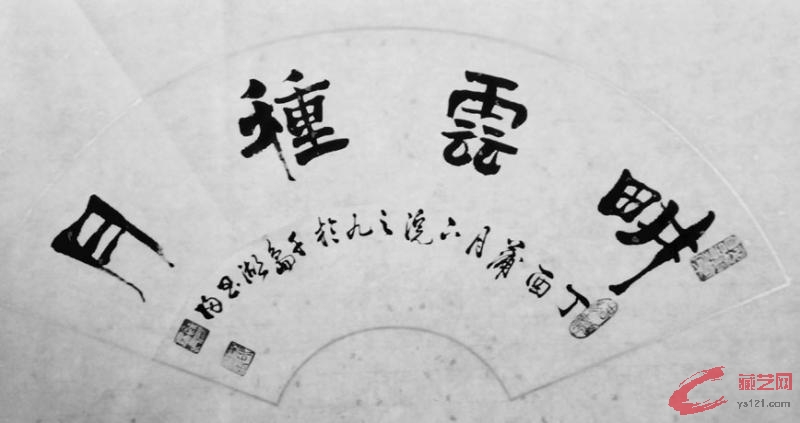 畊雲種月
丁酉蒲月六浣之九於千島湖墨梅
藏艺网
ys121.com